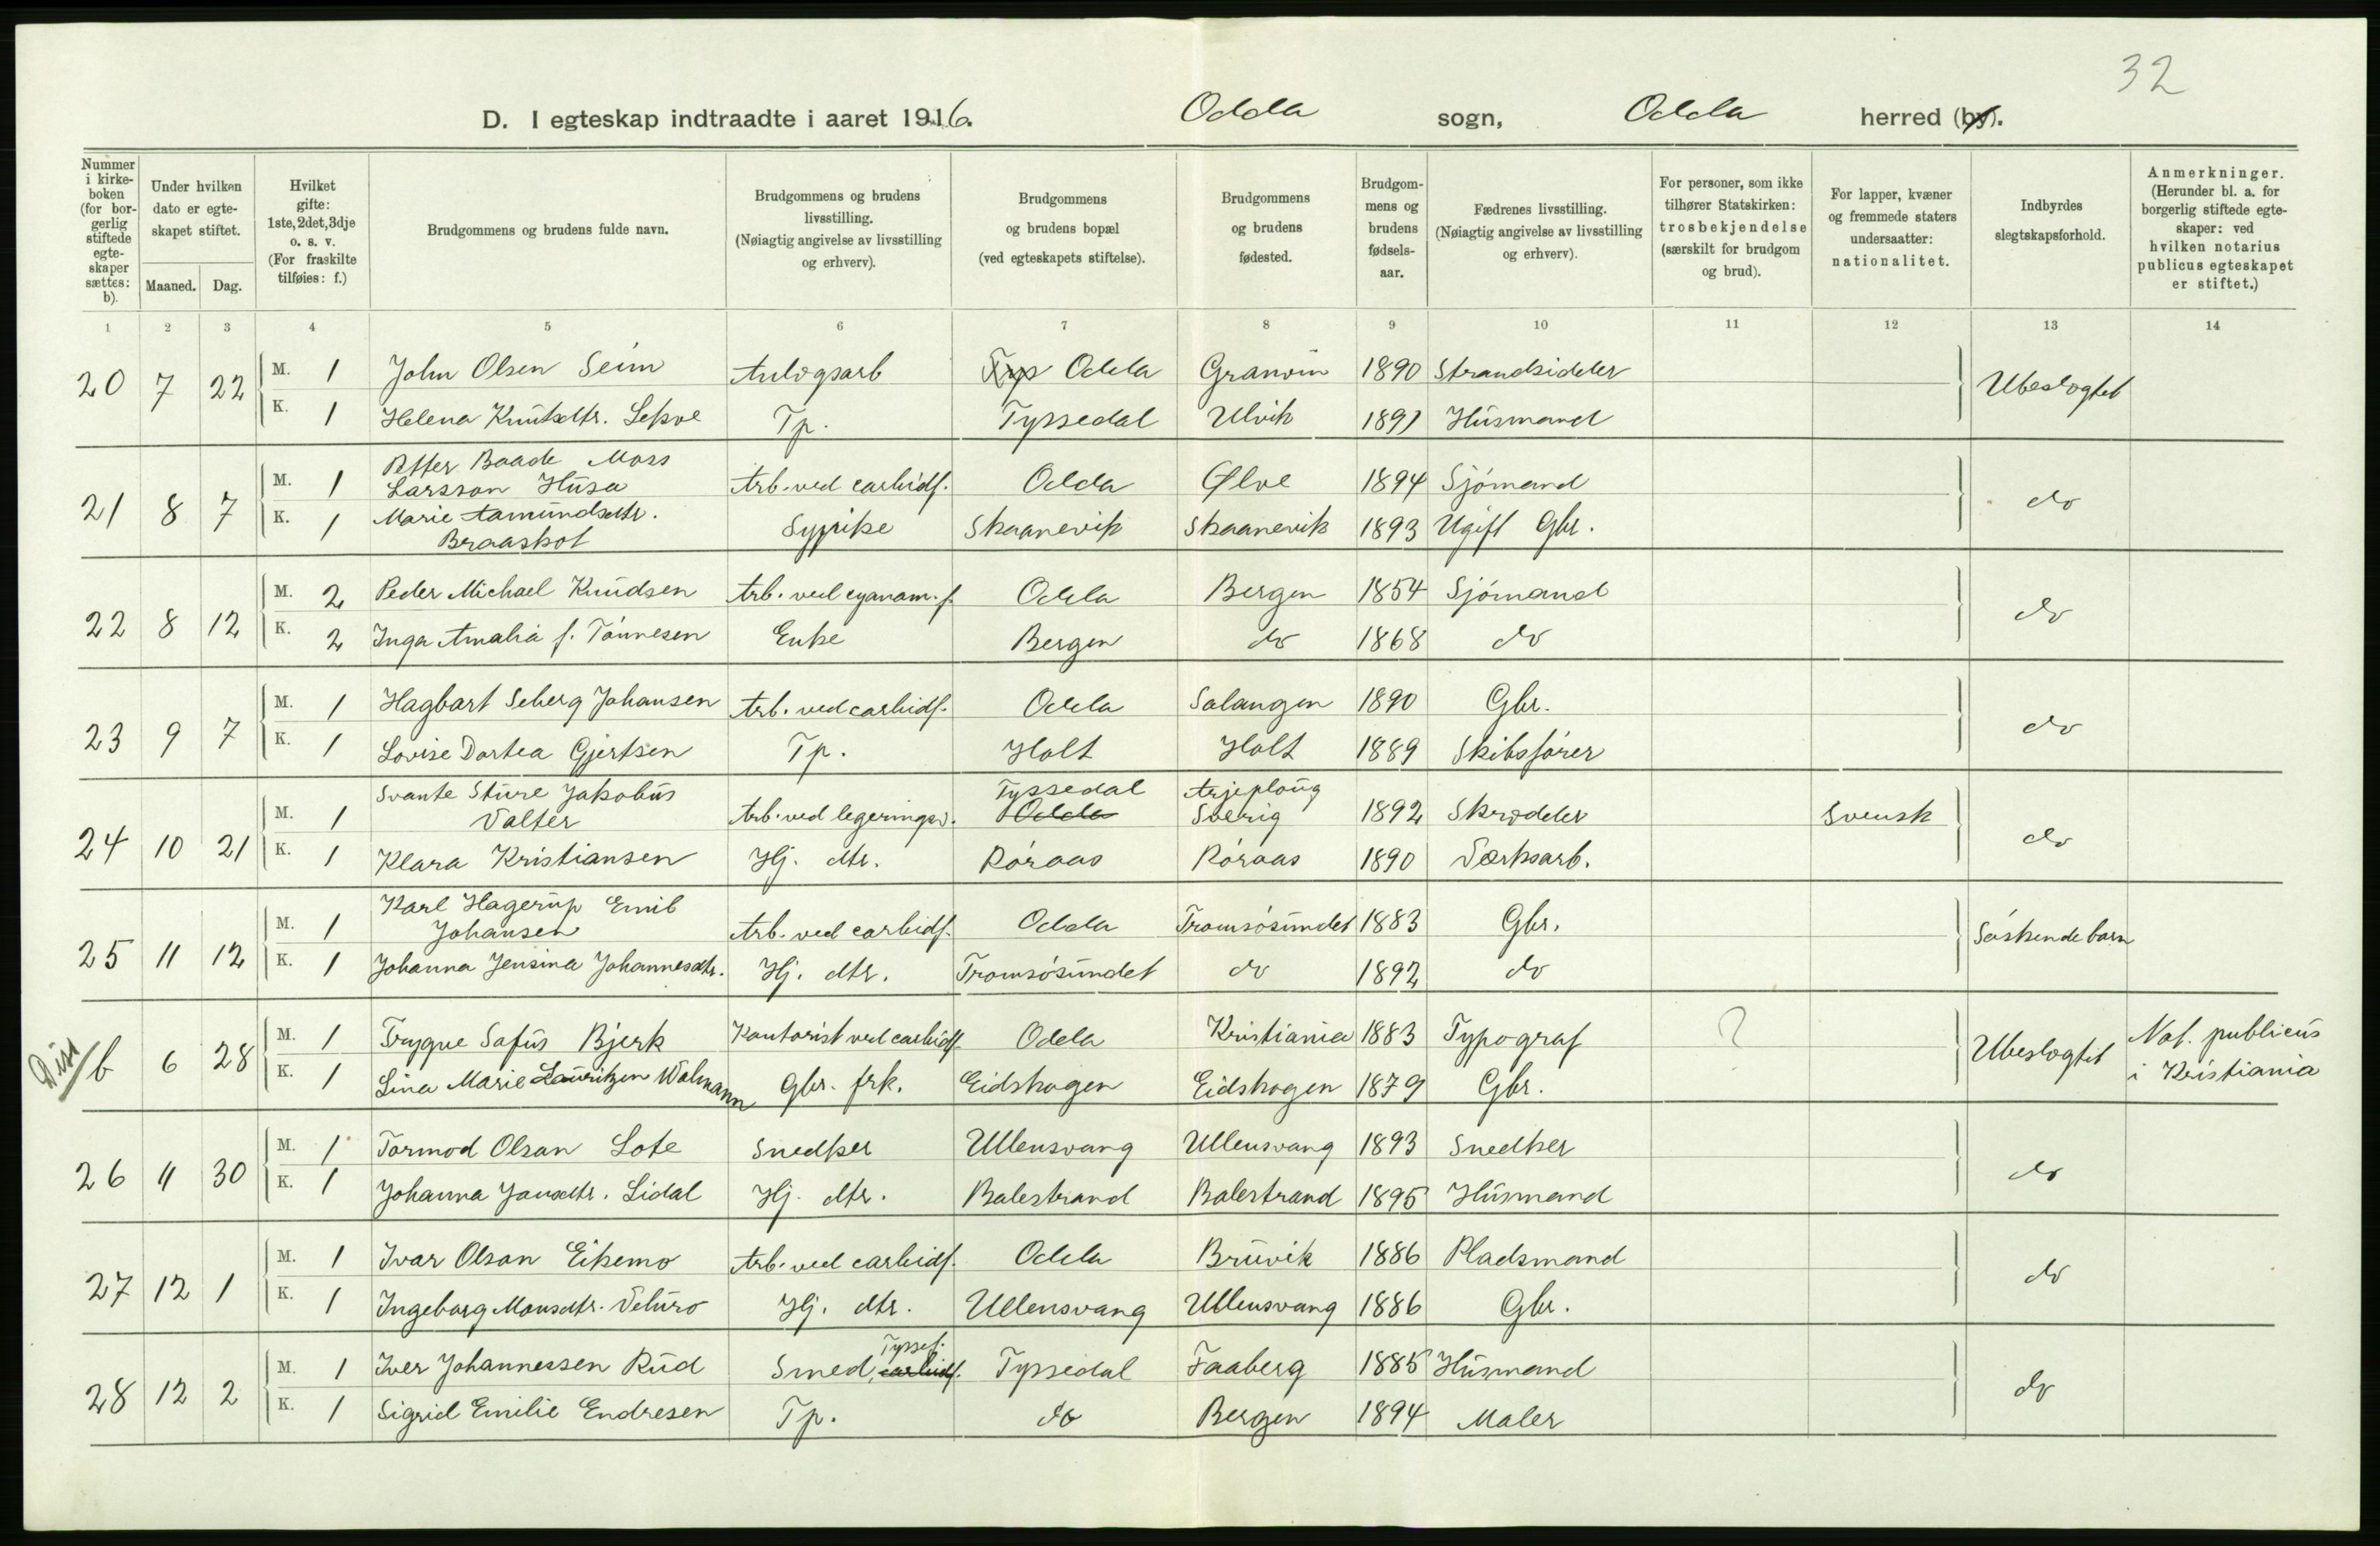 32
D. I egteskap indtraadte i aaret 1916. Odda sogn, Odda herred (by).
Nummer i kirkeboken (for borgerlig stiftede egteskaper sættes: b).
Under hvilken dato er egteskapet stiftet.
Maaned. Dag.
Hvilket gifte: 1ste, 2det, 3dje o. s. v. (For fraskilte tilføies: f.)
Brudgommens og brudens fulde navn.
Brudgommens og brudens livsstilling. (Nøiagtig angivelse av livsstilling og erhverv).
Brudgommens og brudens bopæl (ved egteskapets stiftelse).
Brudgommens og brudens fødested.
Brudgommens og brudens fødselsaar.
Fædrenes livsstilling. (Nøiagtig angivelse av livsstilling og erhverv).
For personer, som ikke tilhører Statskirken: trosbekjendelse (særskilt for brudgom og brud).
For lapper, kvæner og fremmede staters undersaatter: nationalitet.
Indbyrdes slegtskapsforhold.
Anmerkninger. (Herunder bl. a. for borgerlig stiftede egteskaper: ved hvilken notarius publicus egteskapet er stiftet.)
1 2 3 4 5 6 7 8 9 10 11 12 13 14
20 7 22 M. 1 John Olsen Seim Anlægsarb Typ Odda Granvin 1890 Strandsidder Ubeslægtet
K. 1 Helena Knutsdtr. Lekve Tp. Tyssedal Ulvik 1891 Husmand
Petter Baade Moss
21 8 7 M. 1 Larsson Husa Arb. ved carbidf. Odda Ølve 1894 Sjømand do
K. 1 Marie Aamundsdtr. Sypike Skaanevik Skaanevik 1893 Ugift Gbr.
Braaskot
22 8 12 M. 2 Peder Michael Knudsen Arb. ved cyanam. f. Odda Bergen 1854 Sjømand do
K. 2 Inga Amalia f. Tønnesen Enke Bergen do 1868 do
23 9 7 M. 1 Hagbart Seberg Johansen Arb. ved carbidf. Odda Salangen 1890 Gbr. do
K. 1 Lovise Dortea Gjertsen Tp. Holt Holt 1889 Skibsfører
Svante Sture Jakobus Tyssedal Arjeploug
24 10 21 M. 1 Valter Arb. ved legeringsv. Odda Sverig 1892 Skrædder Svensk do
K. 1 Klara Kristiansen Hj. dtr. Røraas Røraas 1890 Værksarb.
Karl Hagerup Emil
25 11 12 M. 1 Johansen Arb. ved carbidf. Odda Tromsøsundet 1883 Gbr. Søskendebarn
K. 1 Johanna Jensina Johannesdtr. Hj. dtr. Tromsøsundet do 1892 do
Diss b 6 28 M. 1 Trygve Safus Bjerk Kontorist ved carbidf Odda Kristiania 1883 Typograf ? Ubeslægtet Not. publicus
K. 1 Lina Marie Lauritzen Wolmann Gbr. frk. Eidskogen Eidskogen 1879 Gbr. i Kristiania
26 11 30 M. 1 Tormod Olsan Lote Snedker Ullensvang Ullensvang 1893 Snedker do
K. 1 Johanna Jansdtr. Lidal Hj. dtr. Balestrand Balestrand 1895 Husmand
27 12 1 M. 1 Ivar Olsan Eikemo Arb. ved carbidf. Odda Bruvik 1886 Pladsmand do
K. 1 Ingeborg Monsdtr. Veturo Hj. dtr. Ullensvang Ullensvang 1886 Gbr.
Tyssef.
28 12 2 M. 1 Iver Johannessen Rud Smed, carbidf. Tyssedal Faaberg 1885 Husmand do
K. 1 Sigrid Emilie Endresen Tp. do Bergen 1894 Maler